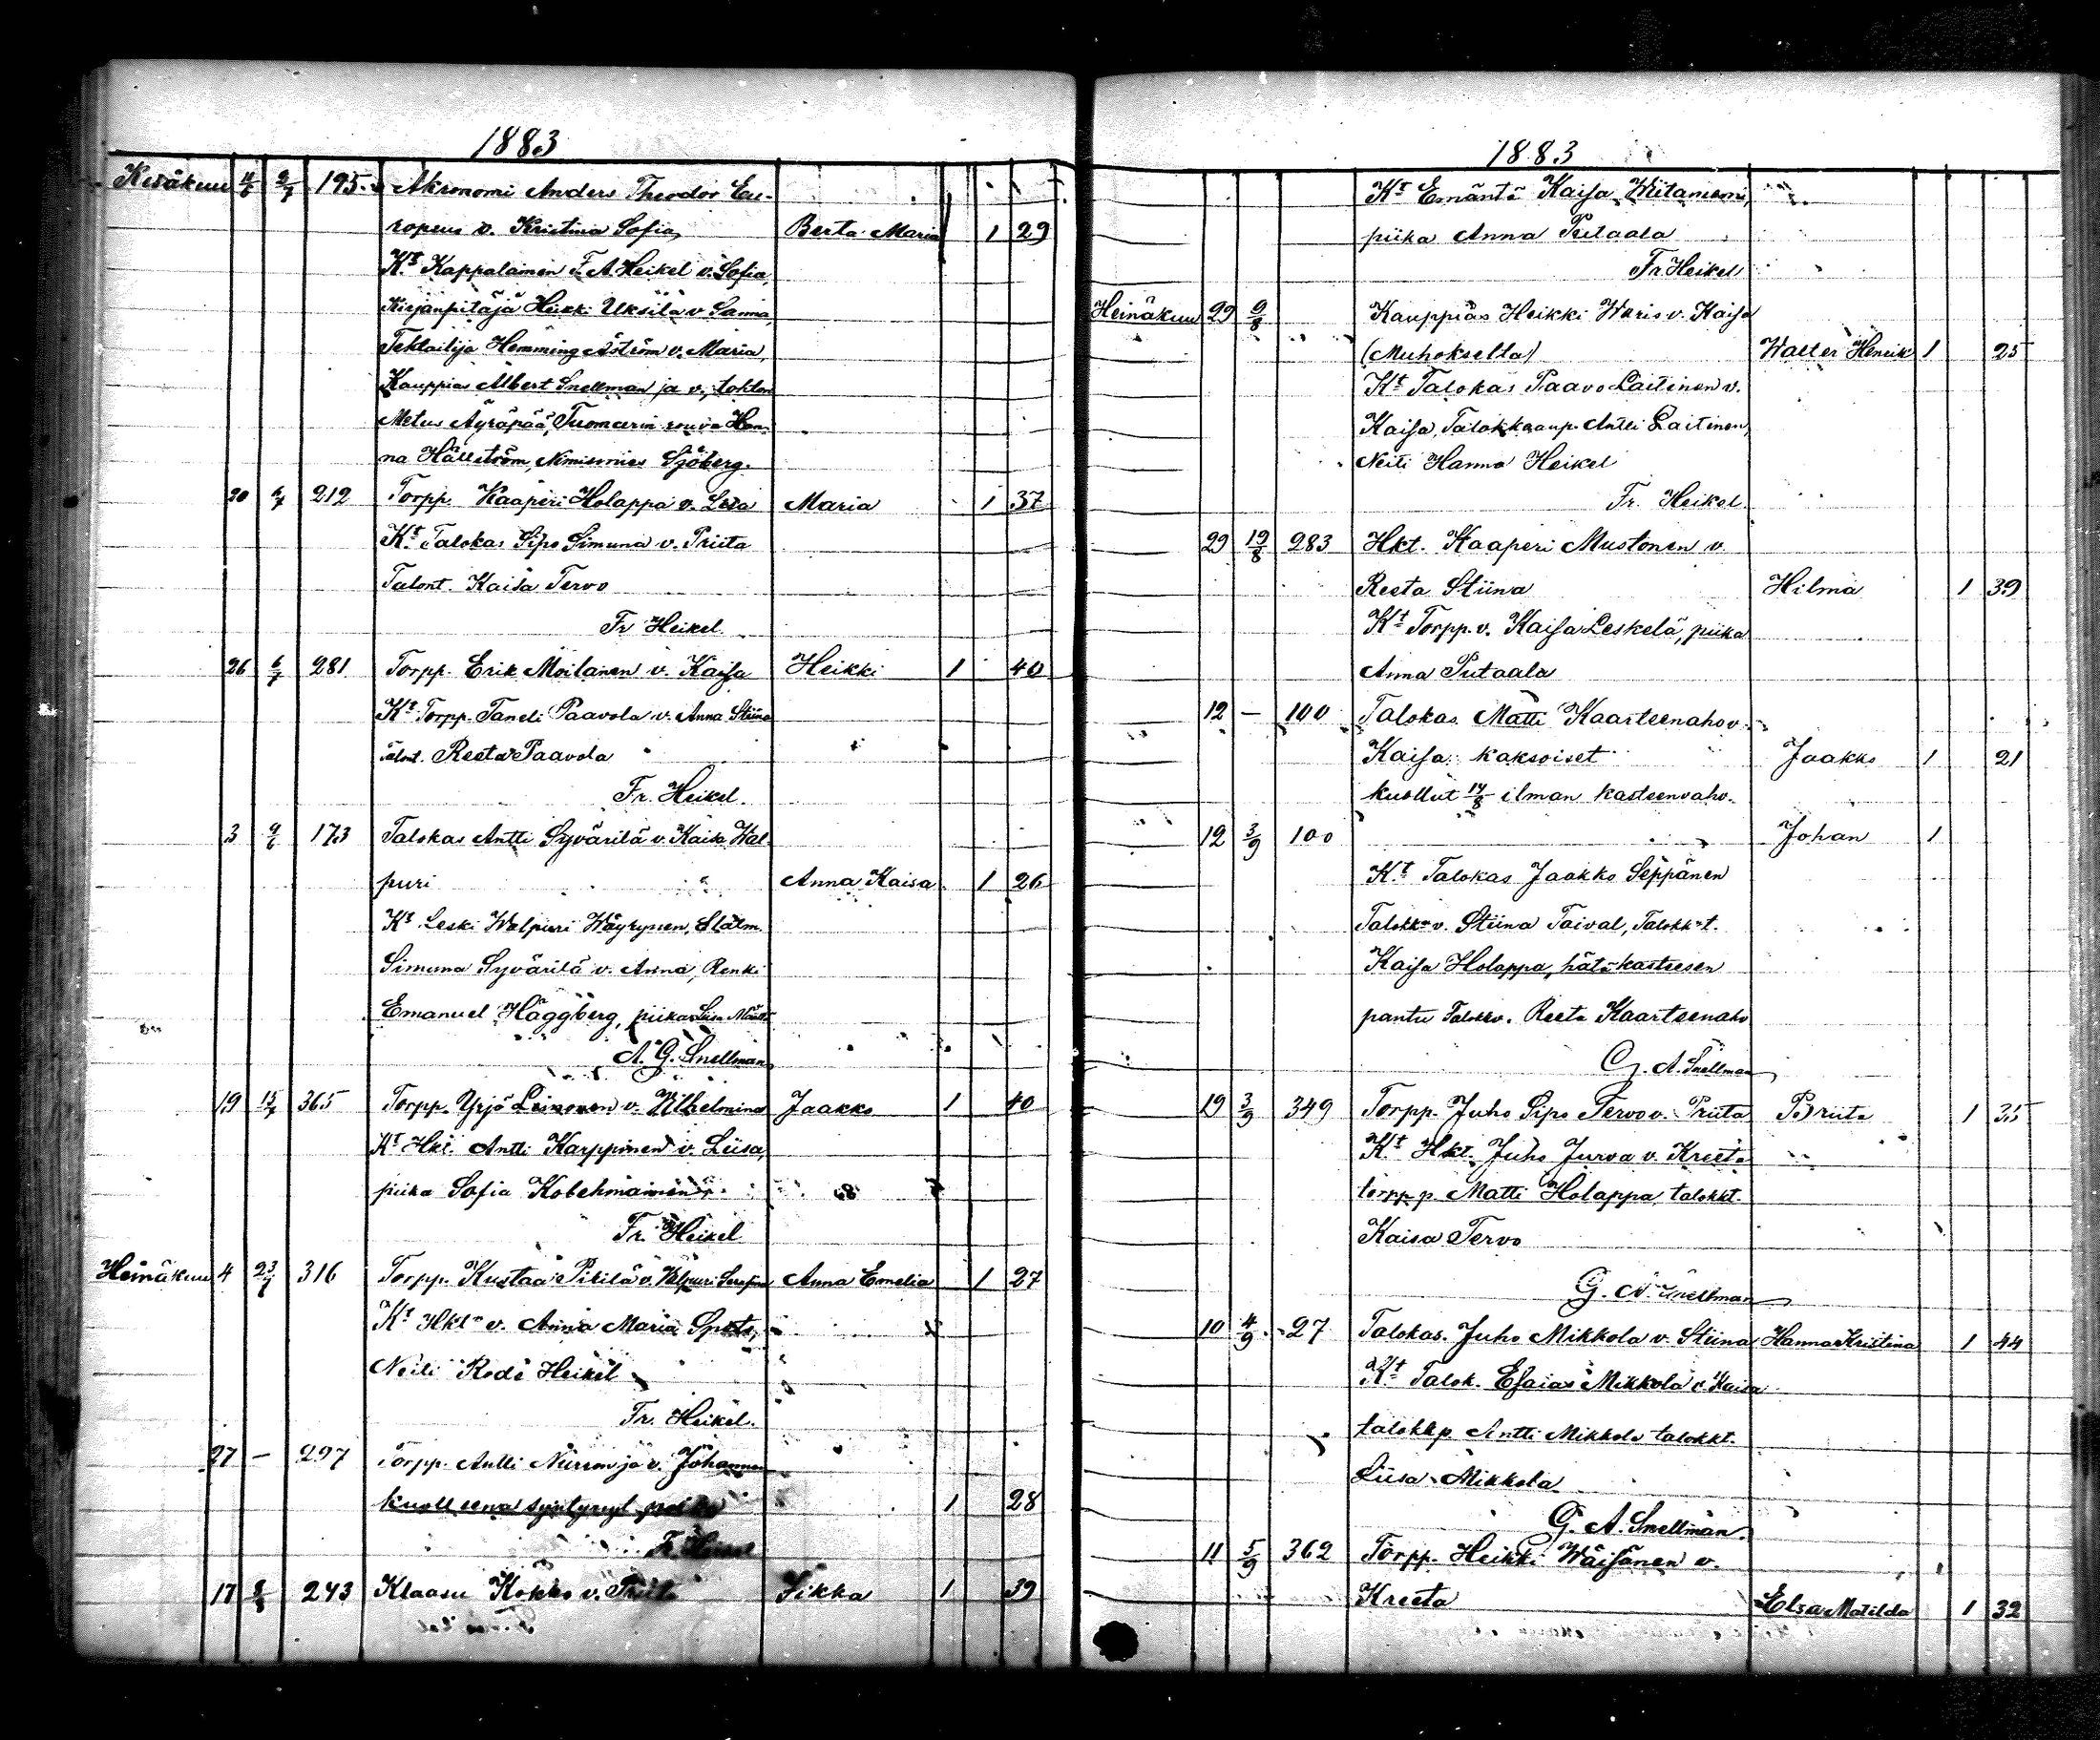 1883
Kesäkuu 195. Akronomi Anders Theodor Eu-
ropeus v. Kristina Sofia Berta Maria 1 29
Kt Kappalainen F. A. Heikel v. Sofia,
Kirjanpitäjä Heikki Uksila v. Sanna,
Tehtailija Hemming Åström v. Maria,
Kauppias Albert Snellman ja v.,
Äyräpää, Tuomarin rouva Han-
na Hällström, Nimismies Sjöberg.
20 6/7 212 Torpp. Kaaperi Holappa v. Lisa Maria 1 37
Kt Talokas Sipo Simuna v. Priita
Talont. Kaisa Tervo
Fr Heikel.
26 6/7 281 Torpp. Erik Moilanen v. Kaisa Heikki 1 40
Kt Torpp. Taneli Paavola v. Anna Stiina
talont. Reeta Paavola
Fr. Heikel.
3 9/6 173 Talokas Antti Syvärilä v. Kaisa Wal-
puri Anna Kaisa 1 26
Kt Leski Walpuri Wäyrynen,
Simuna Syvärilä v. Anna, Renki
Emanuel Häggberg, piika Liisa
A. G. Snellman
19 15/7 365 Torpp. Yrjö Leinonen v. Wilhelmina Jaakko 1 40
Kt Hkt. Antti Karppinen v. Liisa,
piika Sofia Kobehmainen
Fr. Heikel
Heinäkuu 4 23/7 316 Torpp. Kustaa Pikilä v. Walpuri Serafina Anna Emelia 1 27
Kt Hktn v. Anna Maria
Neiti Heikel
Fr. Heikel.
27 – 297 Torpp. Antti v. Johanna
kuolleena syntynyt 1 28
Fr. Heikel
17 243 Klaasu Kokko v. Priita Sikka 1 39
1883
Kt Emäntä Kaisa Wiitamoni,
piika Anna Putaala
Fr Heikel
Heinäkuu 29 9/8 Kauppias Heikki Waris v. Kaisa
(Muhokselta) Walter Henrik 1 25
Kt Talokas Paavo Laitinen v.
Kaisa, Talokkaanp. Antti Laitinen,
Neiti Hanna Heikel
Fr. Heikel.
29 19/8 283 Hkt. Kaaperi Mustonen v.
Reeta Stiina Hilma 1 39
Kt Torpp. v. Kaisa Leskelä, piika
Anna Putaala
12 – 100 Talokas Matti Kaarteenaho v.
Kaisa: kaksoiset Jaakko 1 21
kuollut 14/8 ilman kasteenvahv.
12 3/9 100 Johan 1
Kt Talokas Jaakko Seppänen
Talokkn v. Stiina Taival, Talokknt.
Kaisa Holappa, hätäkasteesen
pantu Talokkv. Reeta Kaarteenaho
G. A. Snellman
19 3/9 349 Torpp. Juho Sipo Tervo v. Priita Briita 1 35
Kt Hkt. Juho Jurva v. Kreeta
torpp p. Matti Holappa, talokkt.
Kaisa Tervo
G. A. Snellman
10 4/9 27 Talokas. Juho Mikkola v. Stiina Hanna Kristina 1 44
Kt Talok. Esaias Mikkola v. Kaisa
talokkp Antti Mikkola talokkt.
Liisa Mikkola
G. A. Snellman.
11 5/9 362 Torpp. Heikki Wäisänen v.
Kreeta Elsa Matilda 1 32